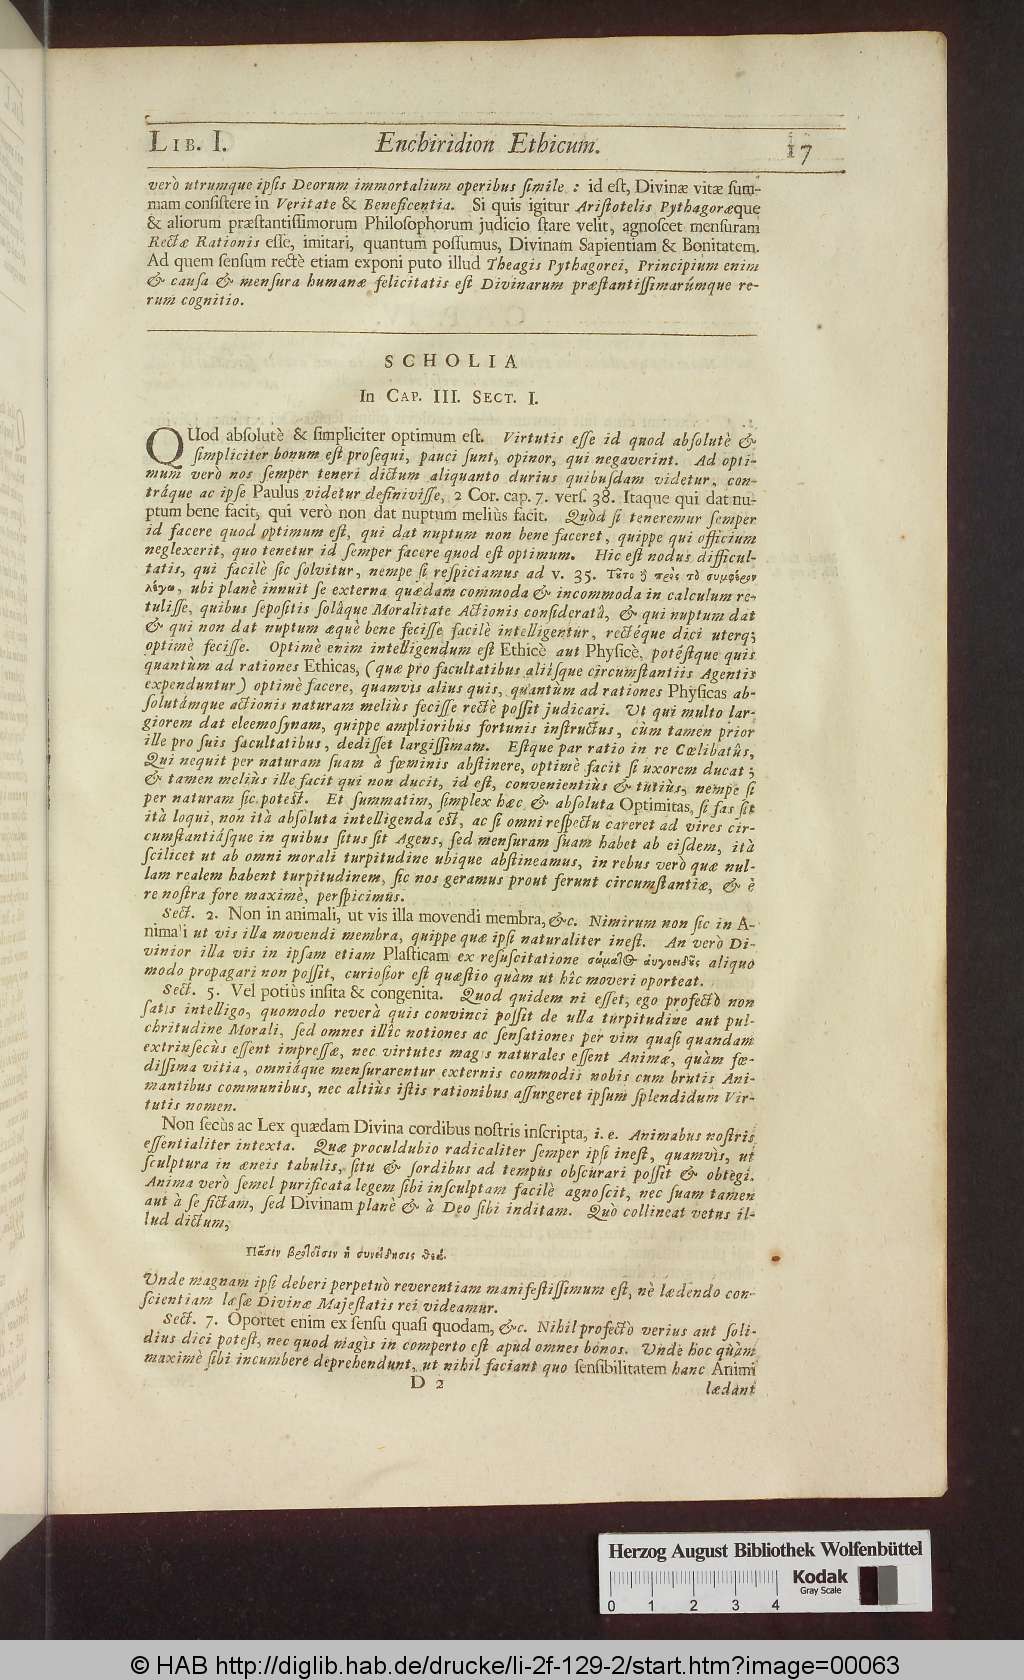 LIB. I. Enchiridion Ethicum. 17
verò utrumque ipsis Deorum immortalium operibus simile : id est, Divinæ vitæ sum-
mam consistere in Veritate & Beneficentia. Si quis igitur Aristotelis Pythagoræque
& aliorum præstantissimorum Philosophorum judicio stare velit, agnoscet mensuram
Rectæ Rationis esse, imitari, quantum possumus, Divinam Sapientiam & Bonitatem.
Ad quem sensum rectè etiam exponi puto illud Theagis Pythagorei, Principium enim
& causa & mensura humanæ felicitatis est Divinarum præstantissimarúmque re-
rum cognitio.
SCHOLIA
In CAP. III. SECT. I.
QUod absolutè & simpliciter optimum est. Virtutis esse id quod absolutè &
simpliciter bonum est prosequi, pauci sunt, opinor, qui negaverint. Ad opti-
mum verò nos semper teneri dictum aliquanto durius quibusdam videtur, con-
tráque ac ipse Paulus videtur definivisse, 2 Cor. cap. 7. vers. 38. Itaque qui dat nu-
ptum bene facit, qui verò non dat nuptum meliùs facit. Quòd si teneremur semper
id facere quod optimum est, qui dat nuptum non bene faceret, quippe qui officium
neglexerit, quo tenetur id semper facere quod est optimum. Hic est nodus difficul-
tatis, qui facilè sic solvitur, nempe si respiciamus ad v. 35. Τῦτο ȝ πρὸς τὸ συμφέρον
λέγω, ubi planè innuit se externa quædam commoda & incommoda in calculum re-
tulisse, quibus sepositis solâque Moralitate Actionis consideratâ, & qui nuptum dat
& qui non dat nuptum æquè bene fecisse facilè intelligentur, rectéque dici uterq;
optimè fecisse. Optimè enim intelligendum est Ethicè aut Physicè, potéstque quis
quantùm ad rationes Ethicas, (quæ pro facultatibus aliísque circumstantiis Agentis
expenduntur) optimè facere, quamvis alius quis, quantùm ad rationes Physicas ab-
solutámque actionis naturam meliùs fecisse rectè possit judicari. Ut qui multo lar-
giorem dat eleemosynam, quippe amplioribus fortunis instructus, cùm tamen prior
ille pro suis facultatibus, dedisset largissimam. Estque par ratio in re Cœlibatûs,
Qui nequit per naturam suam à fœminis abstinere, optimè facit si uxorem ducat ;
& tamen meliùs ille facit qui non ducit, id est, convenientiùs & tutiùs, nempe si
per naturam sic potest. Et summatim, simplex hæc & absoluta Optimitas, si fas sit
ità loqui, non ità absoluta intelligenda est, ac si omni respectu careret ad vires cir-
cumstantiásque in quibus situs sit Agens, sed mensuram suam habet ab eisdem, ità
scilicet ut ab omni morali turpitudine ubique abstineamus, in rebus verò quæ nul-
lam realem habent turpitudinem, sic nos geramus prout ferunt circumstantiæ, & è
re nostra fore maximè, perspicimus.
Sect. 2. Non in animali, ut vis illa movendi membra, &c. Nimirum non sic in A-
nimali ut vis illa movendi membra, quippe quæ ipsi naturaliter inest. An verò Di-
vinior illa vis in ipsam etiam Plasticam ex resuscitatione σώματ@ αὐγοειδῦς aliquo
modo propagari non possit, curiosior est quæstio quàm ut hîc moveri oporteat.
Sect. 5. Vel potiùs insita & congenita. Quod quidem ni esset, ego profectò non
satis intelligo, quomodo reverà quis convinci possit de ulla turpitudine aut pul-
chritudine Morali, sed omnes illîc notiones ac sensationes per vim quasi quandam
extrinsecùs essent impressæ, nec virtutes magis naturales essent Animæ, quàm fœ-
dissima vitia, omniáque mensurarentur externis commodis nobis cum brutis Ani-
mantibus communibus, nec altiùs istis rationibus assurgeret ipsum splendidum Vir-
tutis nomen.
Non secùs ac Lex quædam Divina cordibus nostris inscripta, i. e. Animabus nostris
essentialiter intexta. Quæ proculdubio radicaliter semper ipsi inest, quamvis, ut
sculptura in æneis tabulis, situ & sordibus ad tempus obscurari possit & obtegi.
Anima verò semel purificata legem sibi insculptam facilè agnoscit, nec suam tamen
aut à se fictam, sed Divinam planè & à Deo sibi inditam. Quò collineat vetus il-
lud dictum,
Πᾶσιν βροτοῖσιν ἡ συνείδησις Θεός.
Unde magnam ipsi deberi perpetuò reverentiam manifestissimum est, nè lædendo con-
scientiam læsæ Divinæ Majestatis rei videamur.
Sect. 7. Oportet enim ex sensu quasi quodam, &c. Nihil profectò verius aut soli-
dius dici potest, nec quod magis in comperto est apud omnes bonos. Unde hoc quàm
maximè sibi incumbere deprehendunt, ut nihil faciant quo sensibilitatem hanc Animi
D 2 lædant
Herzog August Bibliothek Wolfenbüttel
Kodak
Gray Scale
0 1 2 3 4
© HAB http://diglib.hab.de/drucke/li-2f-129-2/start.htm?image=00063